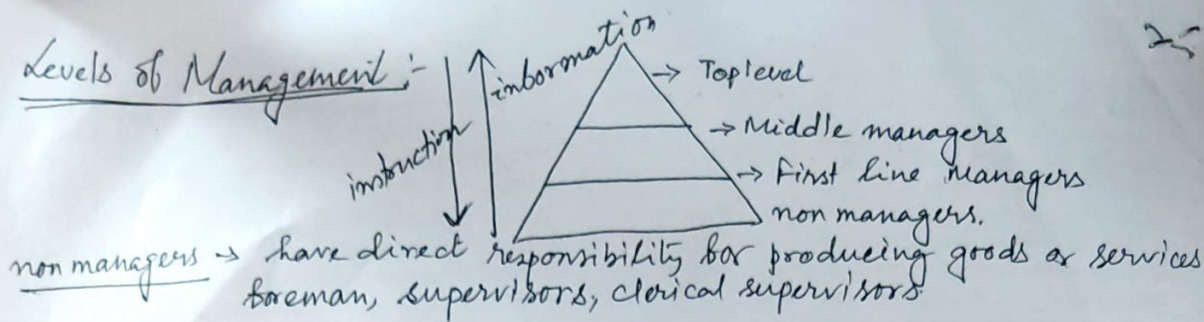 Levels of Management :-
instruction
information
→ Top level
→ Middle managers
→ First line managers
non managers.
non managers → have direct responsibility for producing goods or services
foreman, supervisors, clerical supervisors.